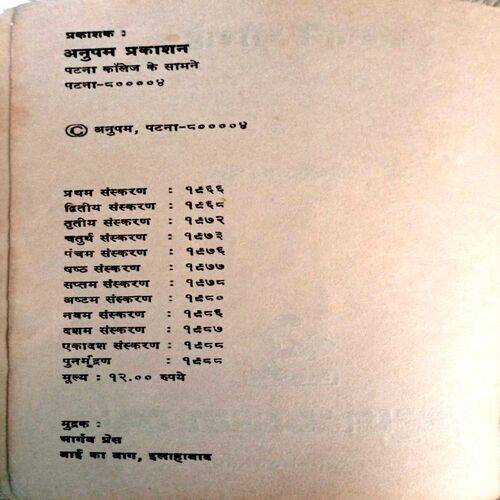 प्रकाशक :
अनुपम प्रकाशन
पटना कॉलेज के सामने
पटना-८००००४
© अनुपम, पटना-८००००४
प्रथम संस्करण : १९६६
द्वितीय संस्करण : १९६८
तृतीय संस्करण : १९७२
चतुर्थ संस्करण : १९७३
पंचम संस्करण : १९७६
षष्ठ संस्करण : १९७७
सप्तम संस्करण : १९७८
अष्टम संस्करण : १९८०
नवम संस्करण : १९८६
दशम संस्करण : १९८७
एकादश संस्करण : १९८८
पुनर्मूद्रण : १९८८
मूल्य : १२.०० रुपये
मुद्रक :
भार्गव प्रेस
बाई का बाग, इलाहाबाद